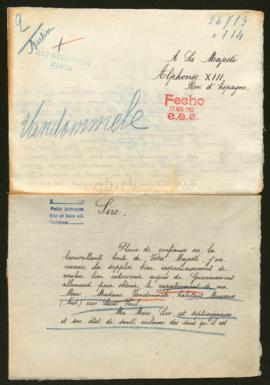 2
26713
n° 114
A Sa Majesté
Alphonse XIII,
Roi d'Espagne.
Fecho
Vandommele
Sire,
Pleine de confiance en la
bienveillante bonté de Votre Majesté, j'ose
venir la supplier bien respectueusement de
vouloir bien intervenir auprès du Gouvernement
allemand pour obtenir le rapatriement de ma
Mère, Madame Vandommele, habitant
rue Saint
Ma Mère est septuagénaire
et son état de santé réclame des soins qu'il est